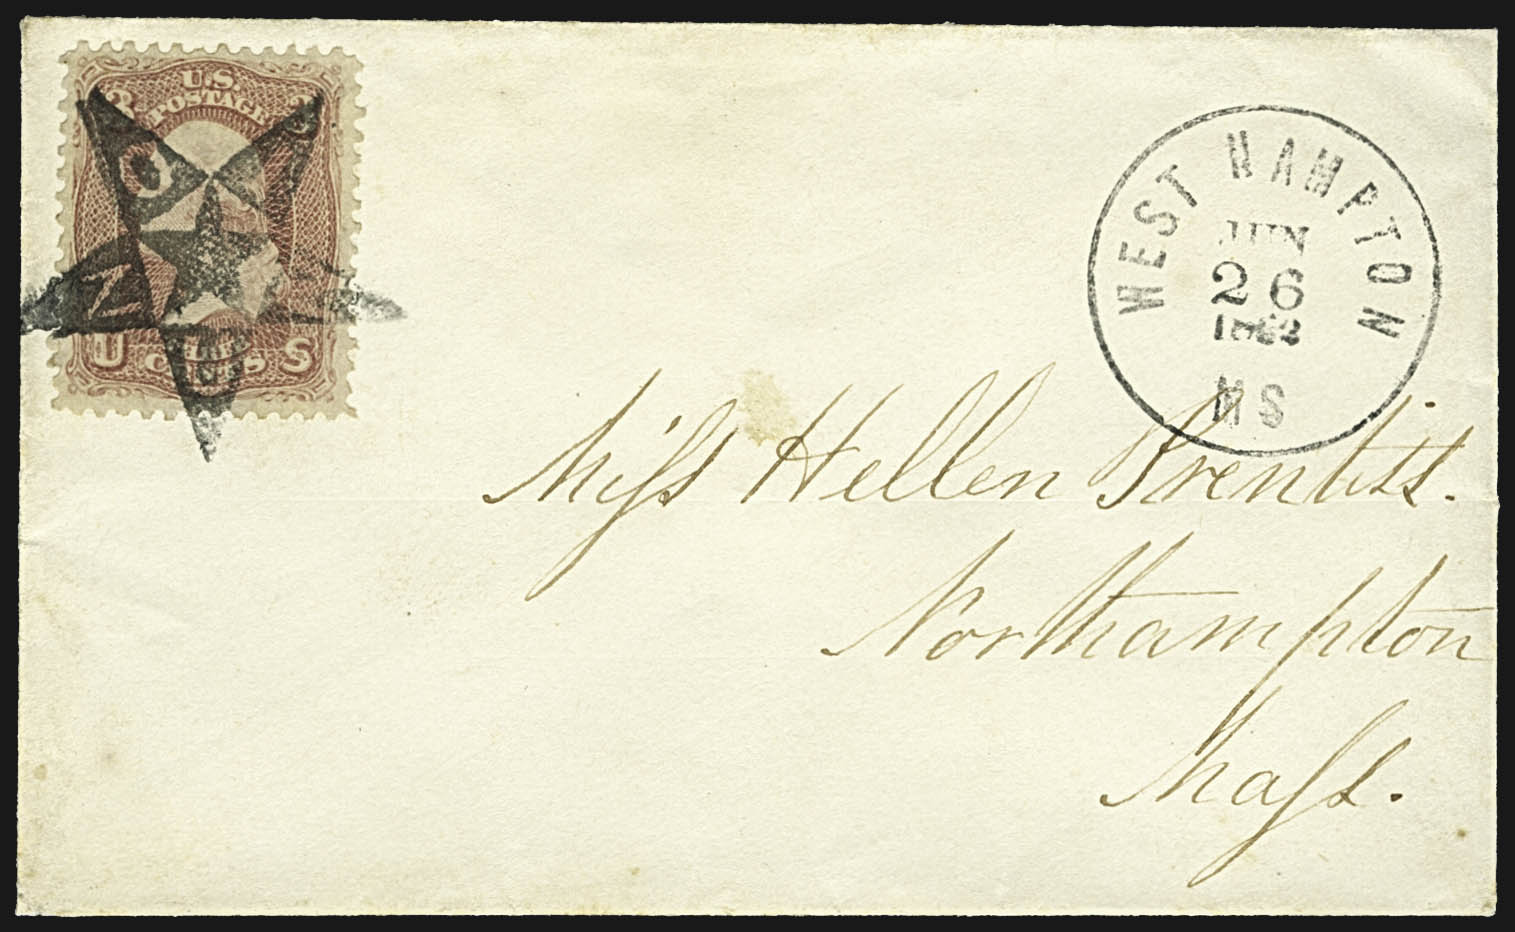 U.S.
POSTAGE
3 3
U N I O N
U S
THREE
CENTS
WEST HAMPTON
JUN
26
1862
MS
Miſs Hellen Prentiss.
Northampton
Maſs.